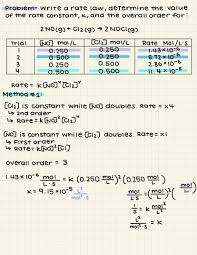 Problem: write a rate law, determine the value
of the rate constant, k, and the overall order for:
2NO(g) + Cl2(g) → 2NOCl(g)
Trial [NO] mol/L [Cl2] mol/L Rate mol/L·s
1 0.250 0.250 1.43×10⁻⁶
2 0.500 0.250 5.72×10⁻⁶
3 0.250 0.500 2.86×10⁻⁶
4 0.500 0.500 11.4×10⁻⁶
Rate = k[NO]ˣ[Cl]ʸ
Method #1:
[Cl2] is constant while [NO] doubles. Rate = x4
↳ 2nd order
↳ Rate = k[NO]²[Cl]ʸ
[NO] is constant while [Cl] doubles. Rate = x1
↳ First order
↳ Rate = k[NO]²[Cl]¹
overall order = 3
1.43×10⁻⁶ mol/L·s = k (0.250 mol/L)² (0.250 mol/L)
k = 9.15×10⁻⁵ L²/mol²·s
mol/L·s = k (mol/L)² (mol/L)
1/s = k mol²/L²
L²/mol²·s = k